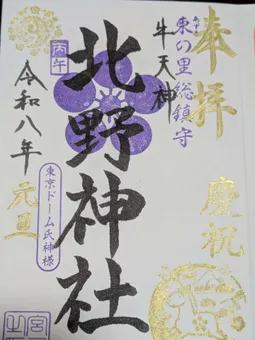 奉拝
慶祝
東の里総鎮守
あずま
牛天神
北野神社
丙午
令和八年
元旦
東京ドーム氏神様